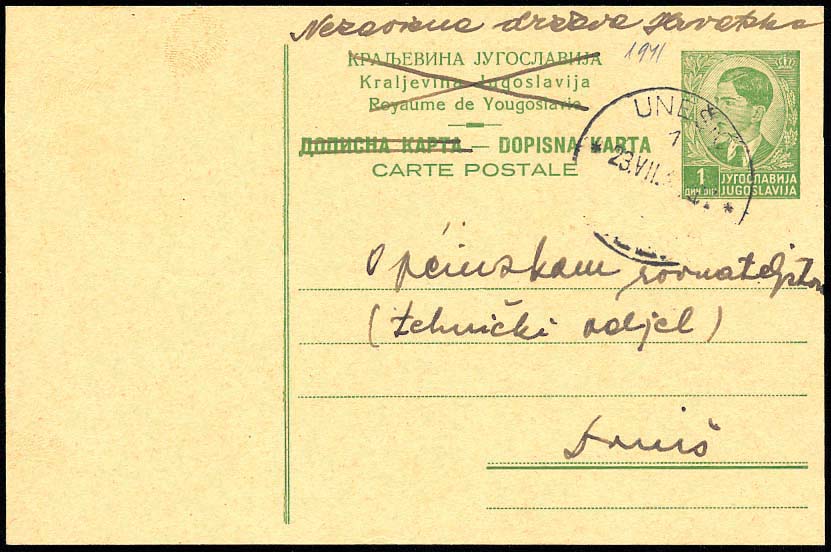 Nezavisna država Hrvatska
1941
КРАЉЕВИНА ЈУГОСЛАВИЈА
Kraljevina Jugoslavija
Royaume de Yougoslavie
ДОПИСНА КАРТА — DOPISNA KARTA
CARTE POSTALE
1
ДИН DIN
ЈУГОСЛАВИЈА
JUGOSLAVIJA
UNEŠIĆ
23.VII.
Općinskom
(tehnički odjel)
Drniš